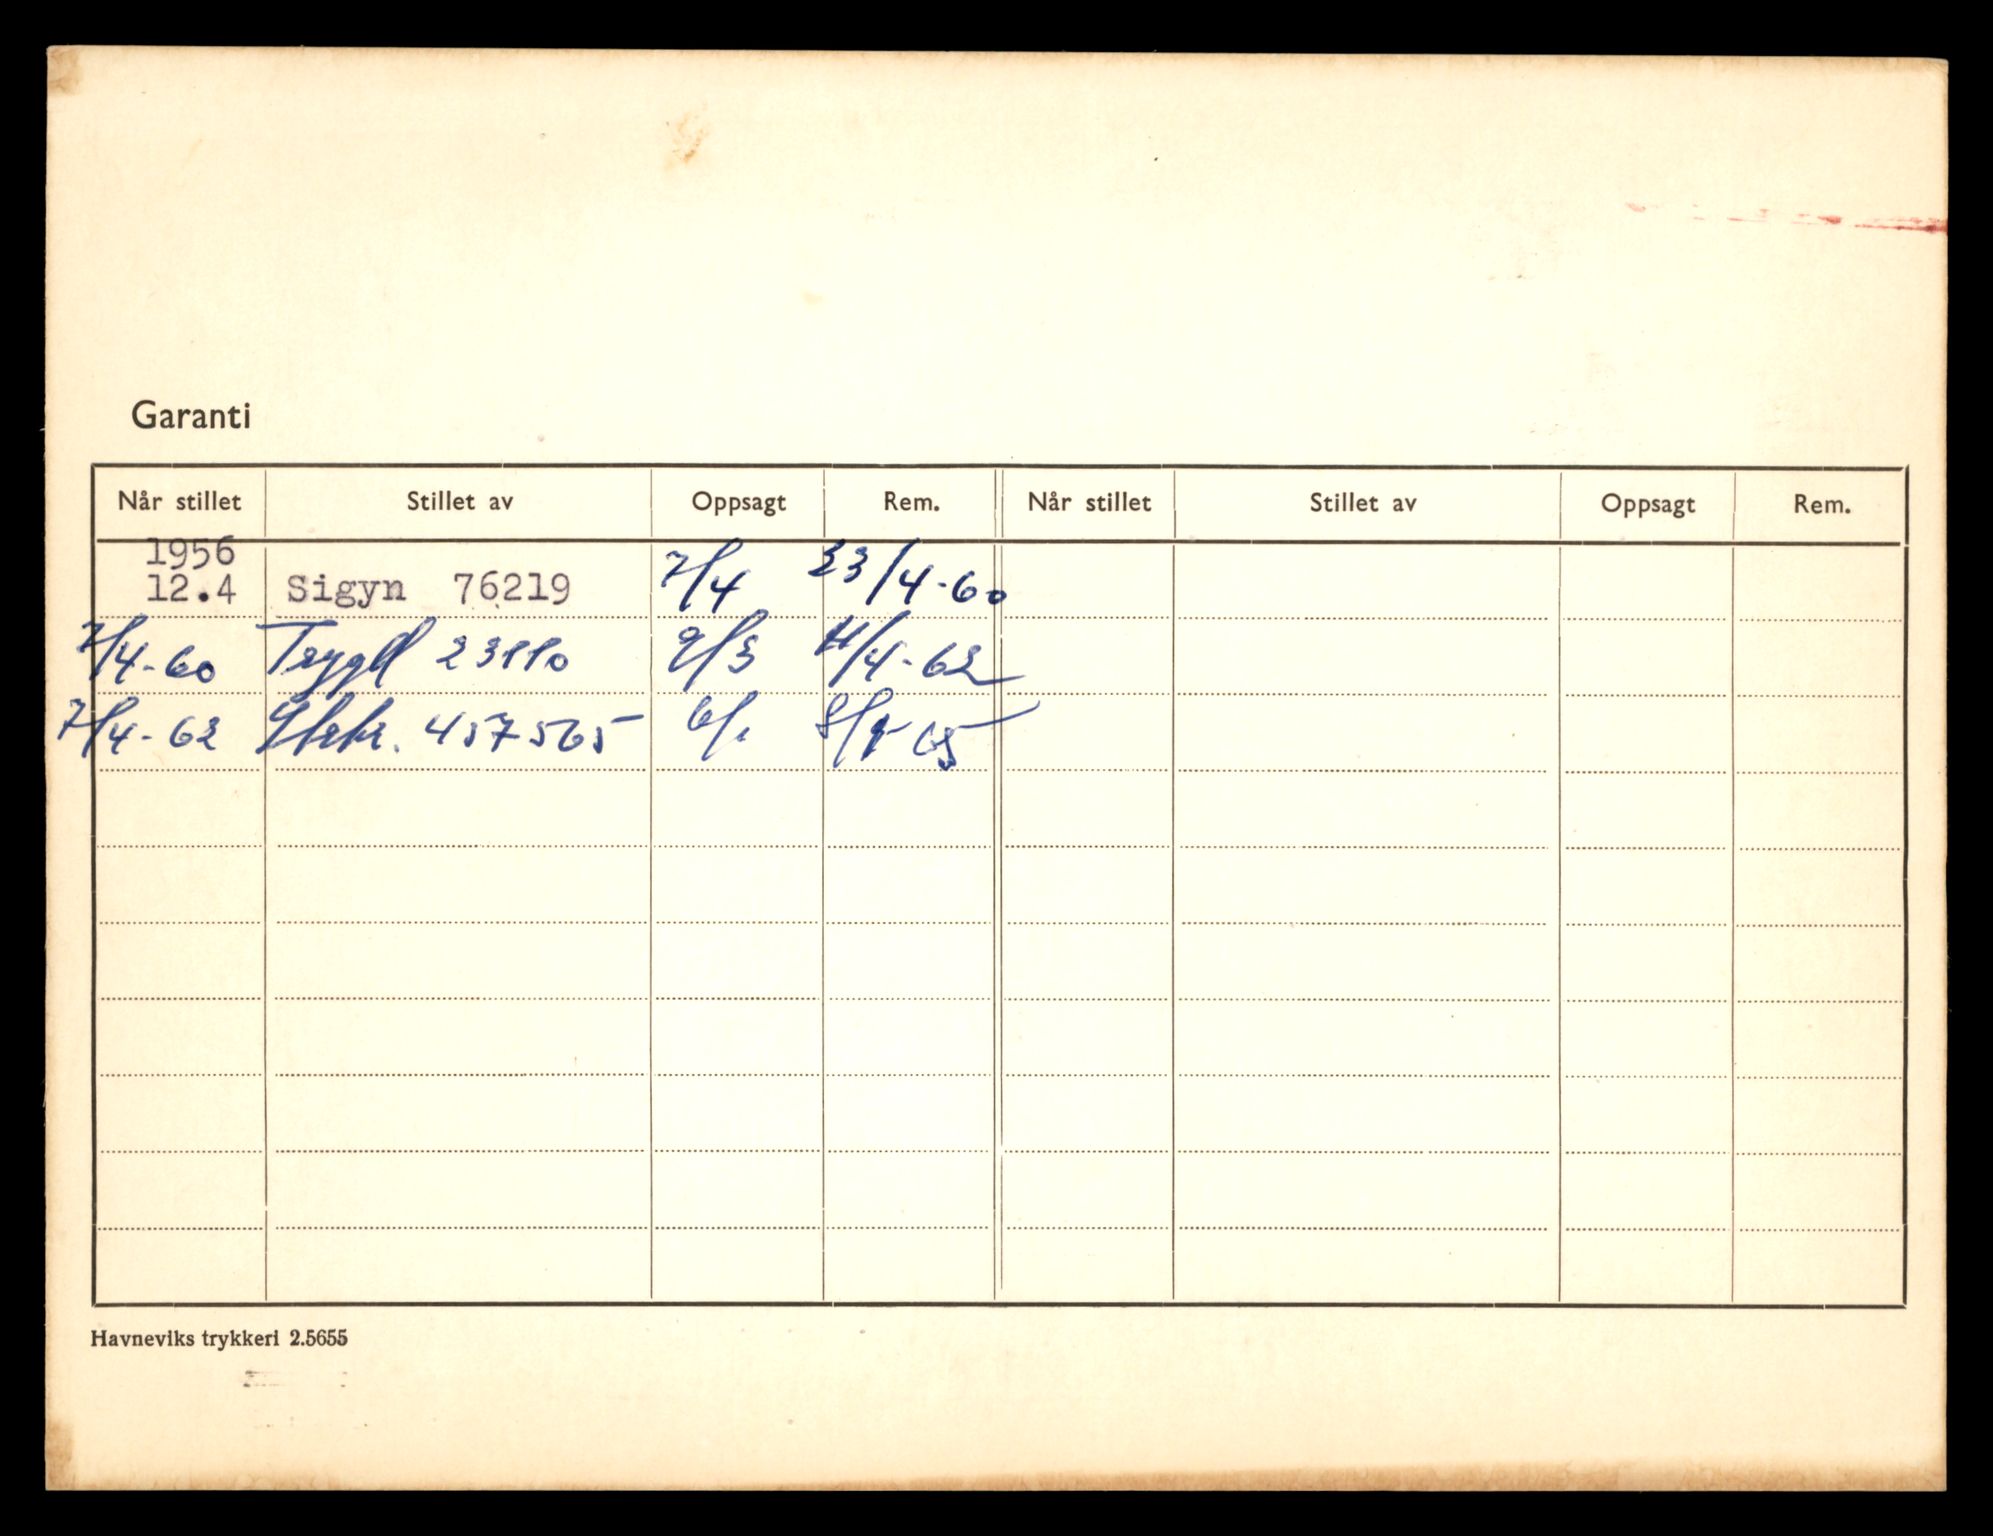 Garanti
Når stillet Stillet av Oppsagt Rem. Når stillet Stillet av Oppsagt Rem.
1956
12.4 Sigyn 76219 7/4 23/4-60
7/4-60 Trygd 23110 9/3 11/4-62
7/4-62 457565 6/1
Havneviks trykkeri 2.5655